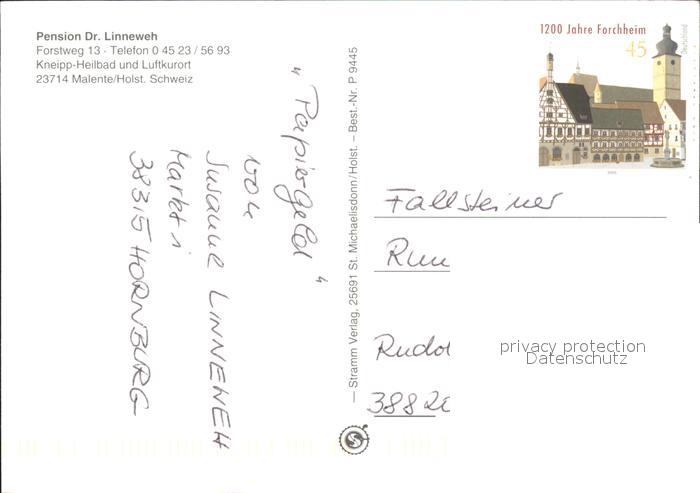 Pension Dr. Linneweh
Forstweg 13 · Telefon 0 45 23 / 56 93
Kneipp-Heilbad und Luftkurort
23714 Malente/Holst. Schweiz
„Papiergeld“
von
Susanne LINNEWEH
Markt 1
38315 HORNBURG
— Stramm Verlag, 25691 St. Michaelisdonn/Holst. – Best.-Nr. P 9445
1200 Jahre Forchheim
45
Deutschland
Fallsteiner
Run
Rudol
3882
privacy protection
Datenschutz